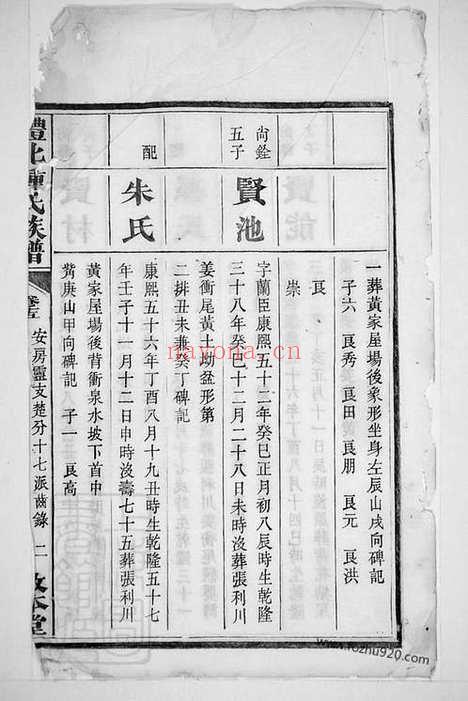 一葬黃家屋場後象形坐身左辰山戌向碑記
子六 艮秀 艮田 艮朋 艮元 艮洪
艮
崇
尙銓
五子
賢池
字蘭臣康熙五十二年癸巳正月初八辰時生乾隆
三十八年癸巳十二月二十八日未時沒葬張利川
姜衝尾黃土坳盆形第
二排丑未兼癸丁碑記
配
朱氏
康熙五十六年丁酉八月十九丑時生乾隆五十七
年壬子十一月十二日申時沒壽七十五葬張利川
黃家屋場後背衝泉水坡下首中
塋庚山甲向碑記 子一 艮高
氏族譜
安房靈支楚分十七派齒錄 二
堂
nayona.cn
www.fozhu920.com